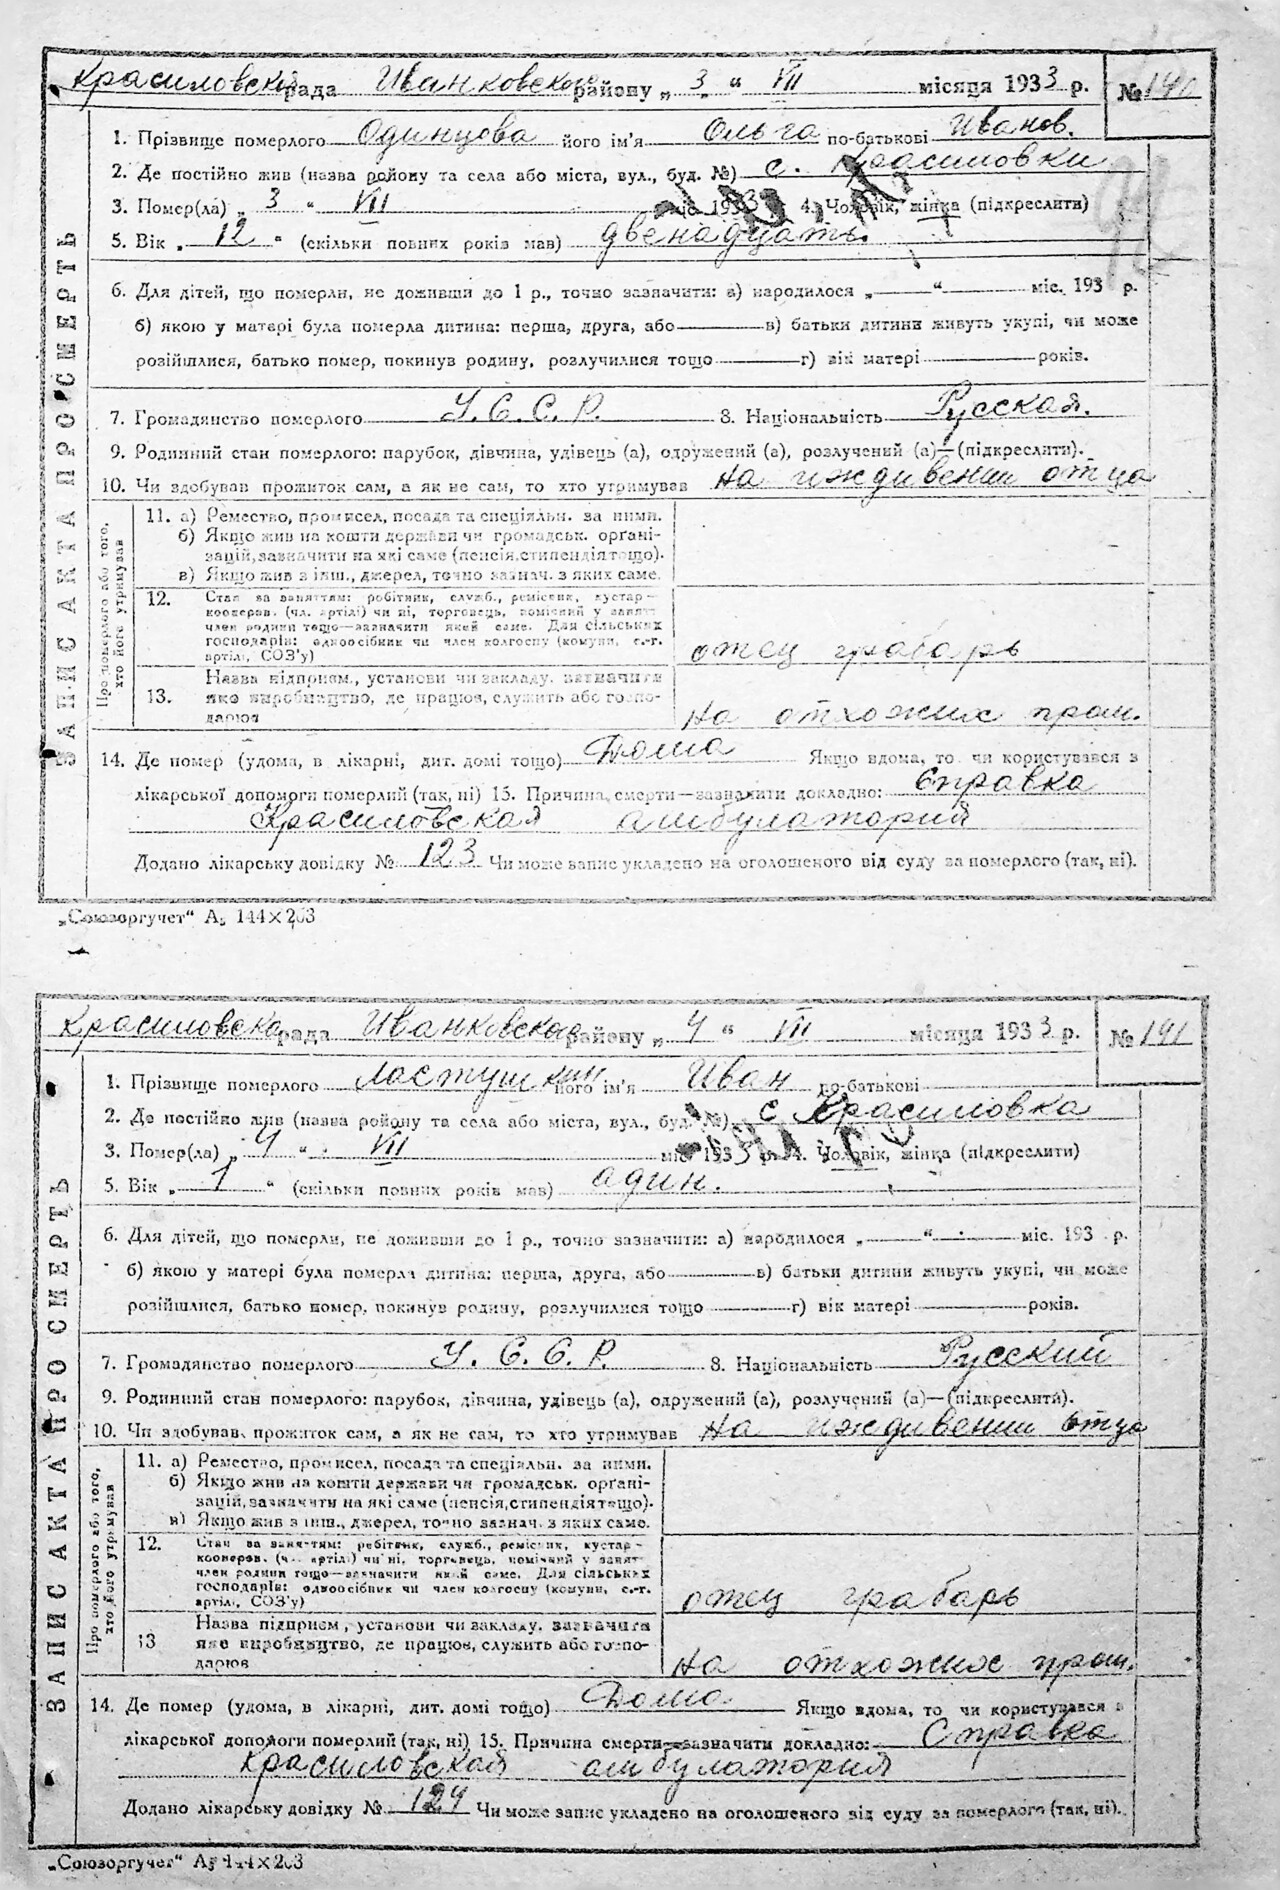 Красиловская рада Иванковского району „ 3 " VII місяця 1933 р. № 190
1. Прізвище померлого Одинцова його ім'я Ольга по-батькові Иванов.
2. Де постійно жив (назва району та села або міста, вул., буд. №) с. Красиловки
3. Помер(ла) „ 3 " VII 1933 4. Чоловік, жінка (підкреслити)
5. Вік „ 12 " (скільки повних років мав) двенадцать.
6. Для дітей, що померли, не доживши до 1 р., точно зазначити: а) народилося „ — " — міс. 193 р.
б) якою у матері була померла дитина: перша, друга, або — в) батьки дитини живуть укупі, чи може
розійшлися, батько помер, покинув родину, розлучилися тощо — г) вік матері — років.
7. Громадянство померлого У.С.С.Р. 8. Національність Русская.
9. Родинний стан померлого: парубок, дівчина, удівець (а), одружений (а), розлучений (а)—(підкреслити).
10. Чи здобував прожиток сам, а як не сам, то хто утримував на иждивении отца
ЗАПИС АКТА ПРО СМЕРТЬ
Про померлого або того, хто його утримував
11. а) Ремество, промисел, посада та спеціяльн. за ними.
б) Якщо жив на кошти держави чи громадськ. орґані-
зацій, зазначити на які саме (пенсія, стипендія тощо).
в) Якщо жив з інш., джерел, точно зазнач. з яких саме.
12. Стан за заняттям: робітник, служб., ремісник, кустар-
кооперов. (чл. артілі) чи ні, торговець, помічний у занят.
член родини тощо—зазначити який саме. Для сільських
господарів: одноосібник чи член колгоспу (комуни, с.-г.
артілі, СОЗ'у) отец грабарь
13. Назва підприєм., установи чи закладу. зазначити
яке виробництво, де працює, служить або госпо-
дарює на отхожих пром.
14. Де помер (удома, в лікарні, дит. домі тощо) Дома Якщо вдома, то чи користувався з
лікарської допомоги померлий (так, ні) 15. Причина смерти—зазначити докладно: Справка
Красиловская амбулатория
Додано лікарську довідку № 123 Чи може запис укладено на оголошеного від суду за померлого (так, ні).
„Союзоргучет" А5 144×203
Красиловска рада Иванковского району „ 4 " VII місяця 1933 р. № 191
1. Прізвище померлого Ластушкин його ім'я Иван по-батькові
2. Де постійно жив (назва району та села або міста, вул., буд. №) с Красиловка
3. Помер(ла) „ 4 " VII міс 1933 р. 4. Чоловік, жінка (підкреслити)
5. Вік „ 1 " (скільки повних років мав) адин.
6. Для дітей, що померли, не доживши до 1 р., точно зазначити: а) народилося „ — " — міс. 193 р.
б) якою у матері була померла дитина: перша, друга, або — в) батьки дитини живуть укупі, чи може
розійшлися, батько помер, покинув родину, розлучилися тощо — г) вік матері — років.
7. Громадянство померлого У.С.С.Р. 8. Національність Русский
9. Родинний стан померлого: парубок, дівчина, удівець (а), одружений (а), розлучений (а)—(підкреслити).
10. Чи здобував прожиток сам, а як не сам, то хто утримував на иждивении отца
ЗАПИС АКТА ПРО СМЕРТЬ
Про померлого або того, хто його утримував
11. а) Ремество, промисел, посада та спеціяльн. за ними.
б) Якщо жив на кошти держави чи громадськ. орґані-
зацій, зазначити на які саме (пенсія, стипендія тощо).
в) Якщо жив з інш., джерел, точно зазнач. з яких саме.
12. Стан за заняттям: робітник, служб., ремісник, кустар-
кооперов. (чл. артілі) чи ні, торговець, помічний у занят.
член родини тощо—зазначити який саме. Для сільських
господарів: одноосібник чи член колгоспу (комуни, с.-г.
артілі, СОЗ'у) отец грабарь
13 Назва підприєм., установи чи закладу. зазначити
яке виробництво, де працює, служить або госпо-
дарює на отхожих пром.
14. Де помер (удома, в лікарні, дит. домі тощо) Дома Якщо вдома, то чи користувався з
лікарської допомоги померлий (так, ні) 15. Причина смерти—зазначити докладно: Справка
Красиловская амбулатория
Додано лікарську довідку № 124 Чи може запис укладено на оголошеного від суду за померлого (так, ні).
„Союзоргучет" А5 144×203